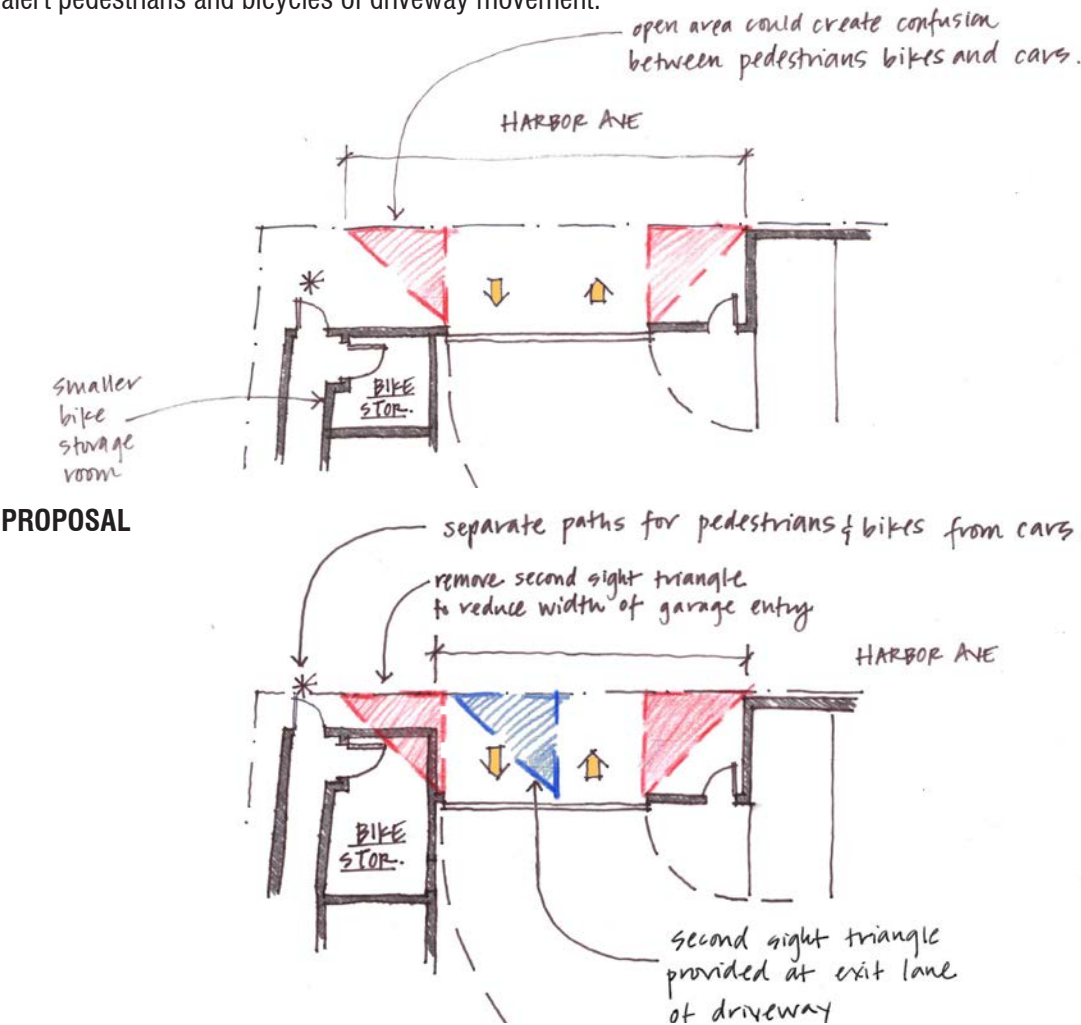 alert pedestrians and bicycles of driveway movement.
open area could create confusion
between pedestrians bikes and cars.
HARBOR AVE
smaller
bike
storage
room
BIKE
STOR.
PROPOSAL
separate paths for pedestrians & bikes from cars
remove second sight triangle
to reduce width of garage entry
HARBOR AVE
BIKE
STOR.
second sight triangle
provided at exit lane
of driveway